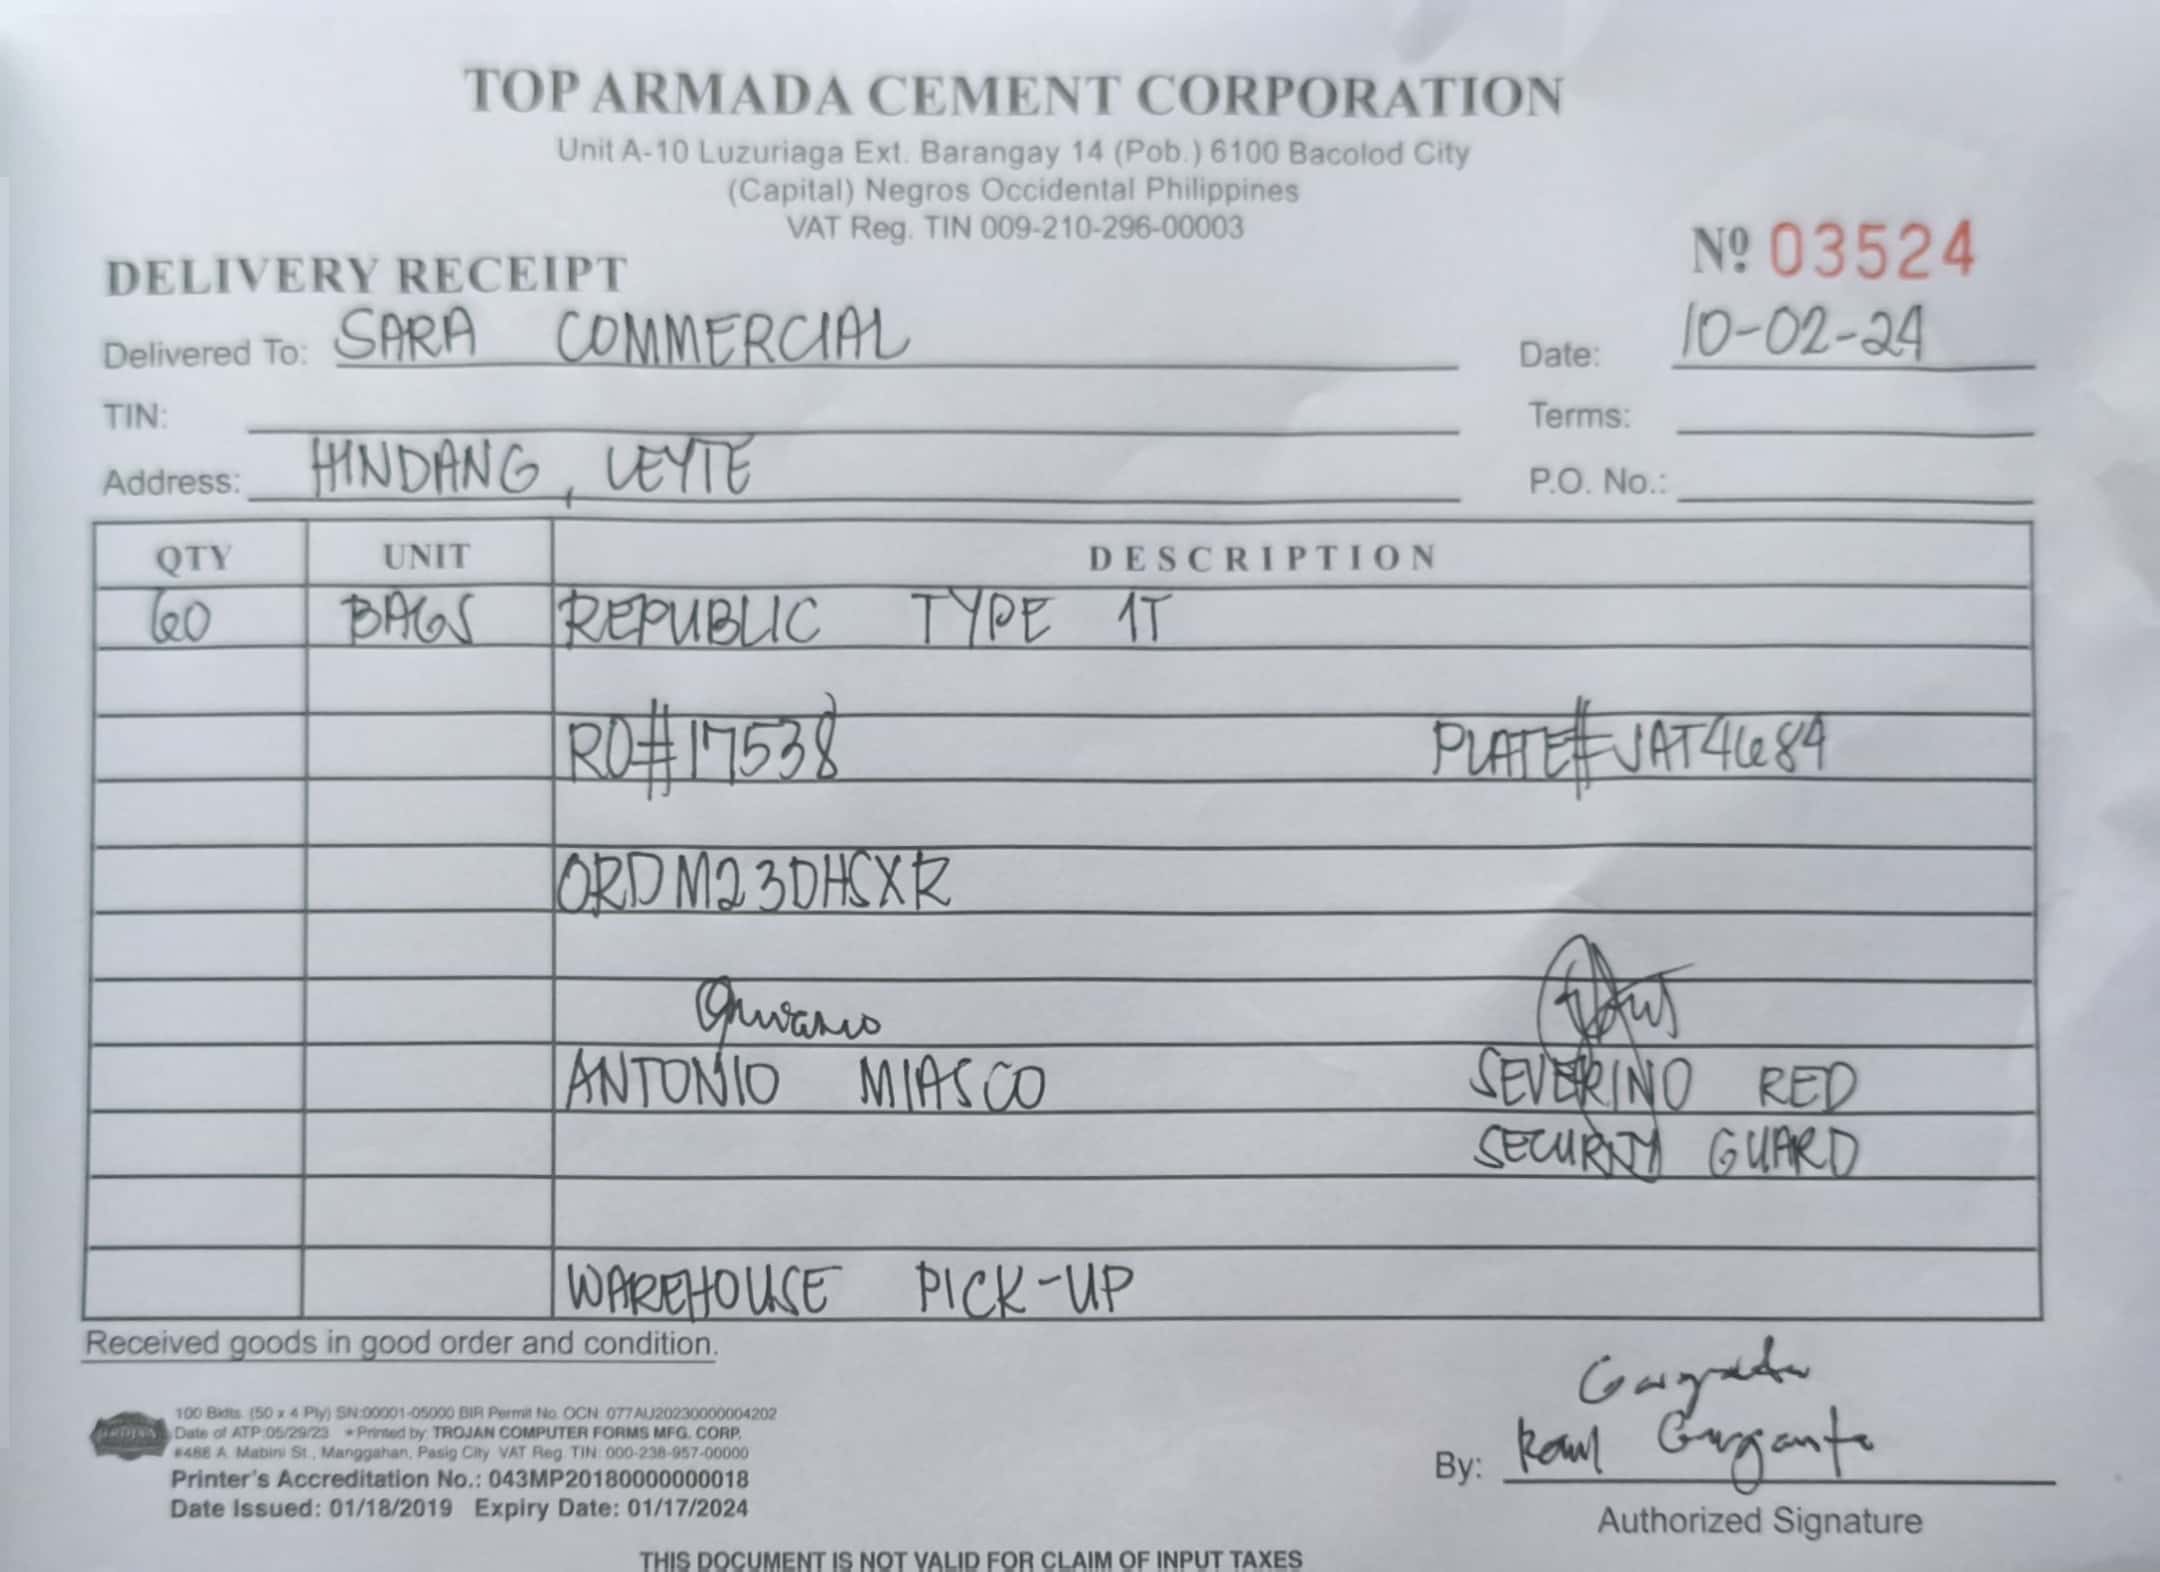 TOP ARMADA CEMENT CORPORATION
Unit A-10 Luzuriaga Ext. Barangay 14 (Pob.) 6100 Bacolod City
(Capital) Negros Occidental Philippines
VAT Reg. TIN 009-210-296-00003
DELIVERY RECEIPT Nº 03524
Delivered To: SARA COMMERCIAL Date: 10-02-24
TIN: Terms:
Address: HINDANG, LEYTE P.O. No.:
QTY UNIT DESCRIPTION
60 BAGS REPUBLIC TYPE 1T
RO#17538 PLATE#JAT4684
ORDM23DHSXR
ANTONIO MIASCO SEVERINO RED
SECURITY GUARD
WAREHOUSE PICK-UP
Received goods in good order and condition.
100 Bklts. (50 x 4 Ply) SN:00001-05000 BIR Permit No. OCN: 077AU20230000004202
Date of ATP:05/29/23 * Printed by: TROJAN COMPUTER FORMS MFG. CORP.
#488 A. Mabini St., Manggahan, Pasig City VAT Reg. TIN: 000-238-957-00000
Printer's Accreditation No.: 043MP20180000000018
Date Issued: 01/18/2019 Expiry Date: 01/17/2024
By:
Authorized Signature
THIS DOCUMENT IS NOT VALID FOR CLAIM OF INPUT TAXES